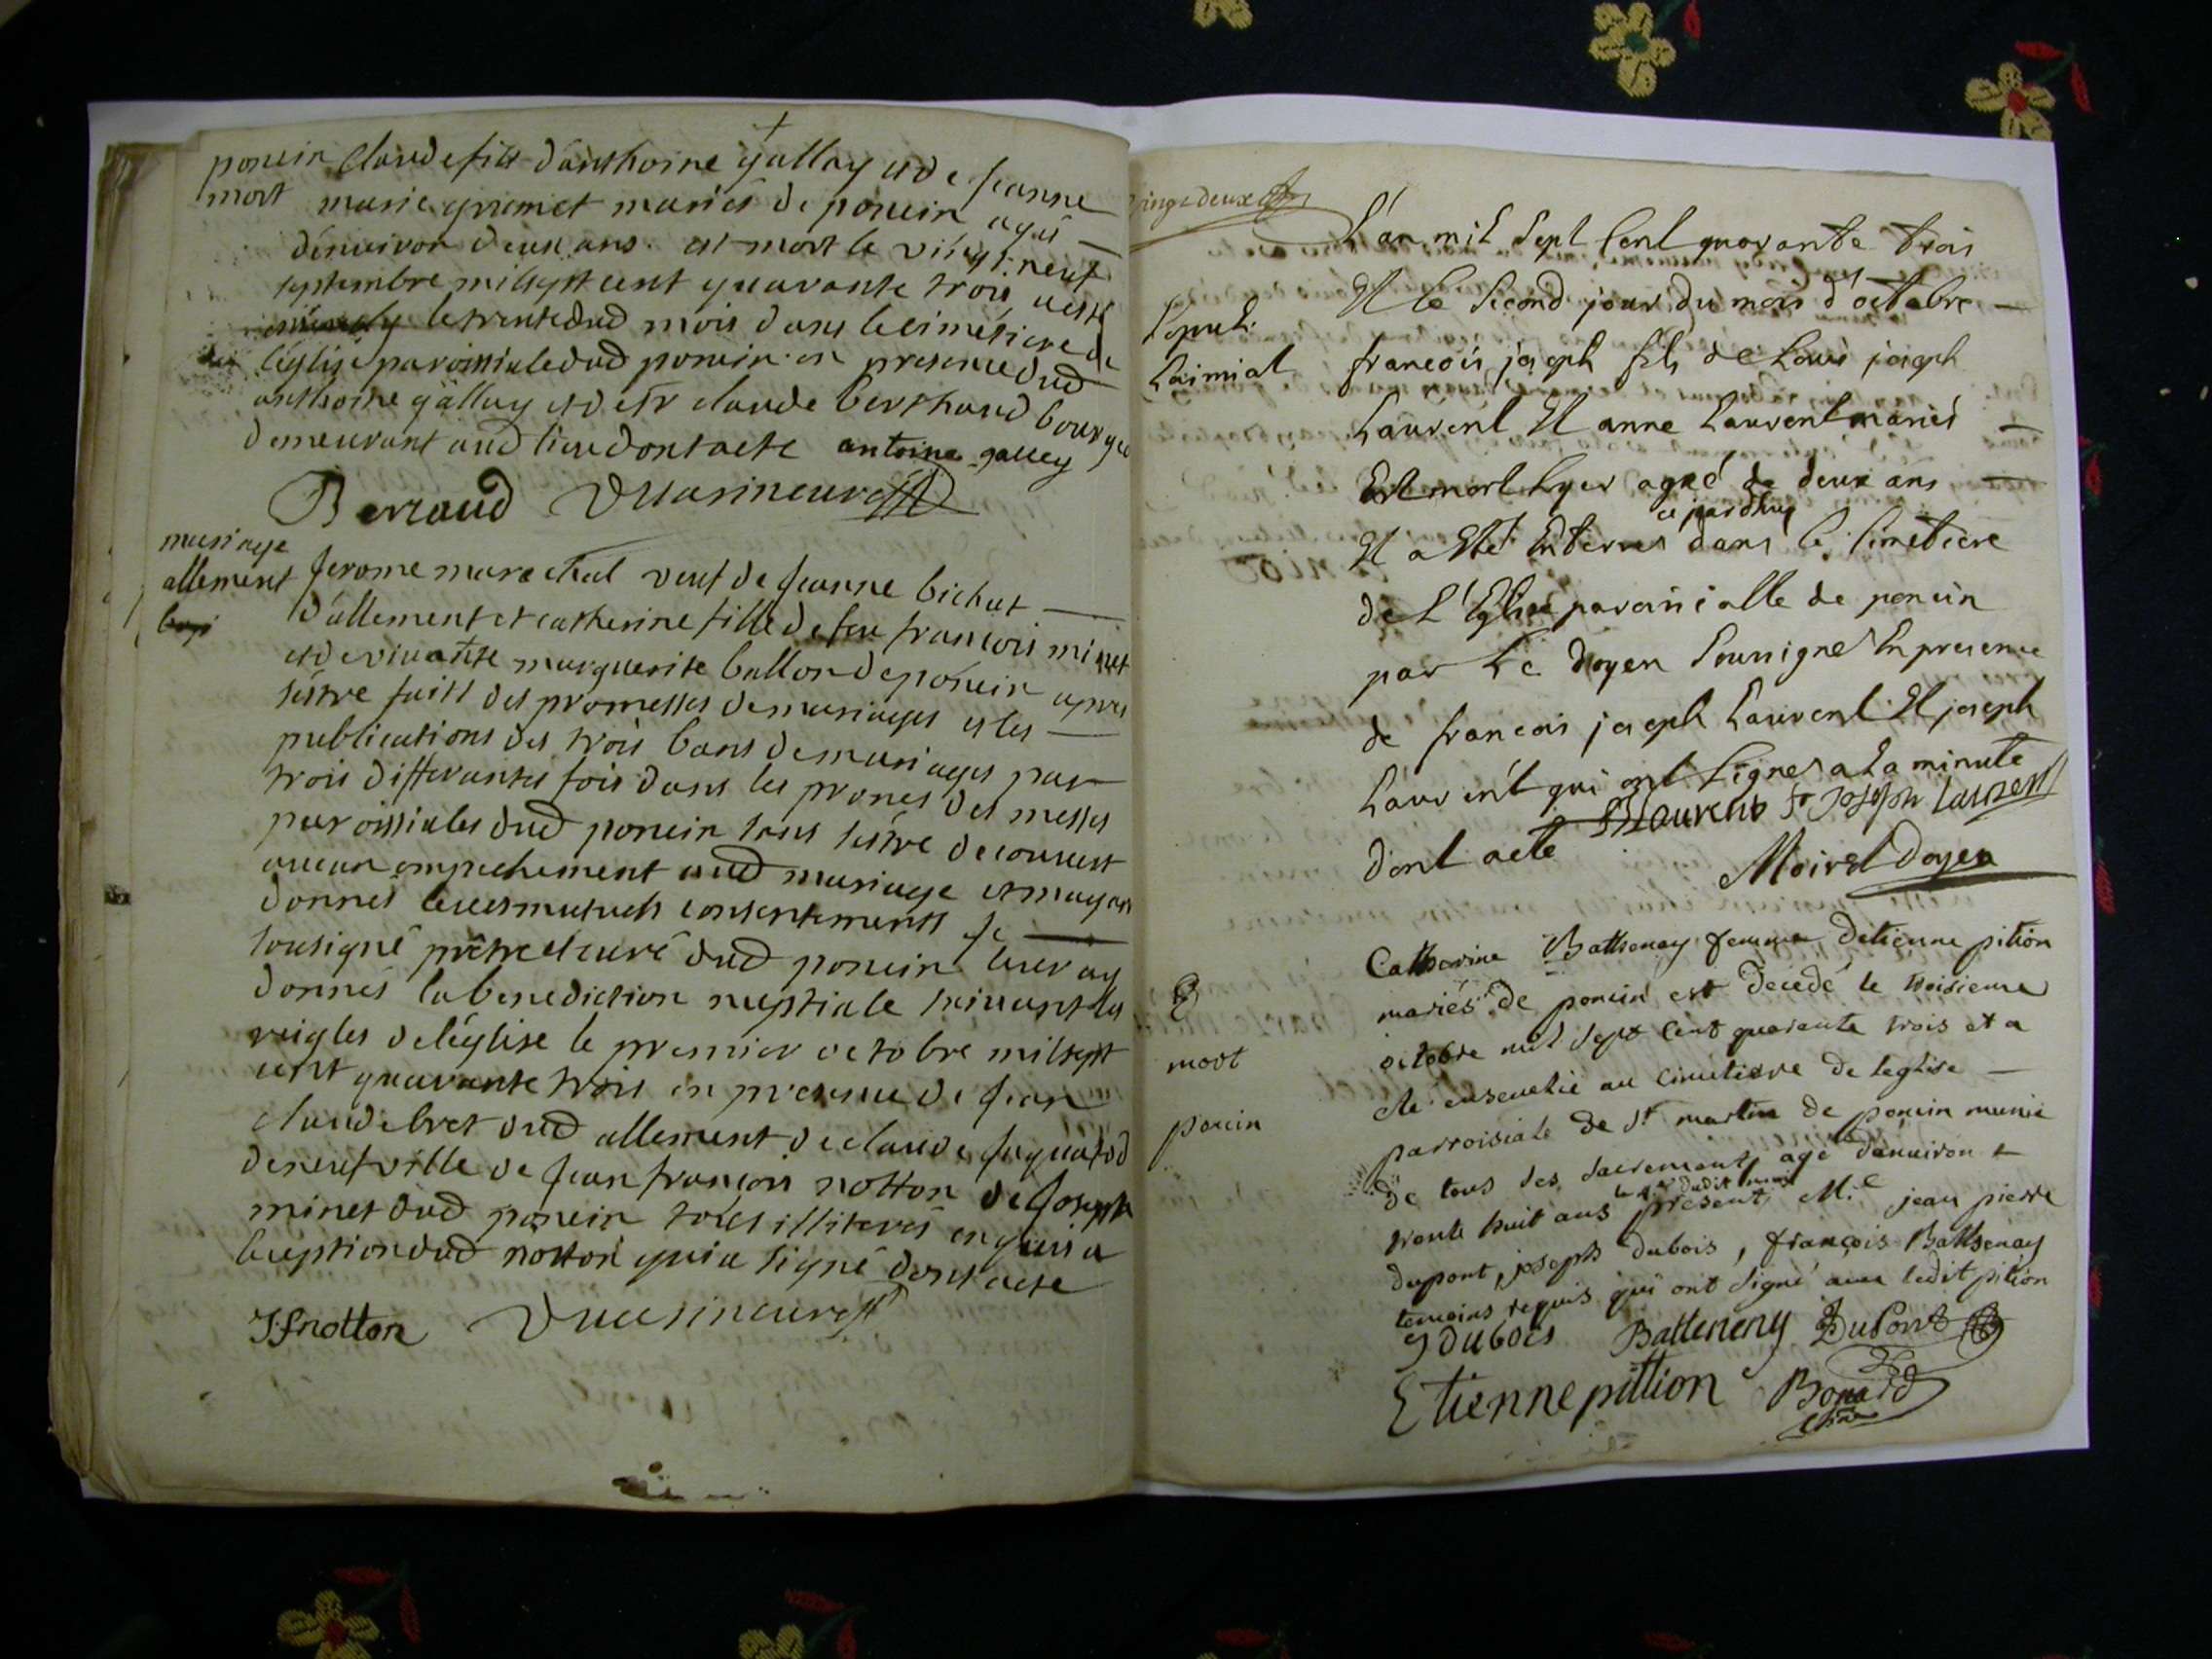 poncin Claude fils d'anthoine gallay et de jeanne
mort marie griemet mariés de poncin agés
d'enuiron deux ans est mort le vingt neuf
septembre mil sept cent quarante trois
le trente dud mois dans le cimétiere de
l'églisse paroissiale dud poncin en presence dud
anthoine gallay et de sr claude berthaud bourgeo
demeurant aud lieu dont acte antoine galley
Berraud
mariage
allement
jerome marechal veuf de jeanne bichat
d'allement et catherine fille de feu francois minet
et de viuante marguerite ballon de poncin apres
sestre faitt des promesses de mariages et les
publications des trois bans de mariages par
trois differantes fois dans les prones des messes
paroissiales dud poncin sans sestre decouuert
aucun empechement aud mariage et mayant
donnés leurs mutuels consentements je
sousigné prêtre et curé dud poncin leur ay
donnés la benediction nuptiale suiuant les
reigles de léglise le premier octobre mil sept
cent quarante trois en presence de jean
claude bret dud allement de claude
de neufville de jean francois notton de joseph
minet dud poncin tous illiterés
ception dud notton qui a signé dont acte
J f notton
vingt deux
L'an mil sept cent quarante trois
Et le second jour du mois d'octobre
francois joseph fils de Louis joseph
Laurent Et anne Laurent mariés
Est mort hyer agé de deux ans
ce jourdhuy
Et a esté Enterré dans le simetiere
de L'Eglise paroissialle de poncin
par Le doyen soussigné En presence
de francois joseph Laurent Et joseph
Laurent qui ont signés a La minute
dont acte Laurent fr Joseph Laurent
Moirel doyen
Catherine Battenay femme d'etienne pition
mariés de poncin est decedé le troisieme
octobre mil sept cent quarante trois et a
mort
eté enseuelie au cimetiere de leglise
poncin
parroisiale de st martin de poncin munie
de tous les sacrements agé d'enuiron
le dudit mois
trente huit ans present Mre jean pierre
dupont, joseph dubois, françois Battenay
temoins requis qui ont signé auec ledit pition
J dubois Batteneny Dupont
Etienne pittion Bonard